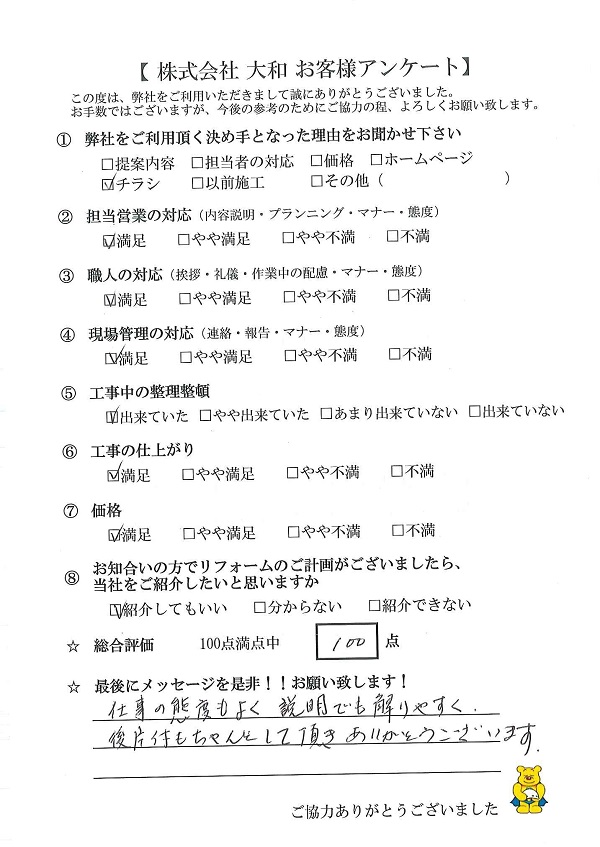 【 株式会社 大和 お客様アンケート】
この度は、弊社をご利用いただきまして誠にありがとうございました。
お手数ではございますが、今後の参考のためにご協力の程、よろしくお願い致します。
① 弊社をご利用頂く決め手となった理由をお聞かせ下さい
□提案内容 □担当者の対応 □価格 □ホームページ
☑チラシ □以前施工 □その他（ ）
② 担当営業の対応（内容説明・プランニング・マナー・態度）
☑満足 □やや満足 □やや不満 □不満
③ 職人の対応（挨拶・礼儀・作業中の配慮・マナー・態度）
☑満足 □やや満足 □やや不満 □不満
④ 現場管理の対応（連絡・報告・マナー・態度）
☑満足 □やや満足 □やや不満 □不満
⑤ 工事中の整理整頓
☑出来ていた □やや出来ていた □あまり出来ていない □出来ていない
⑥ 工事の仕上がり
☑満足 □やや満足 □やや不満 □不満
⑦ 価格
☑満足 □やや満足 □やや不満 □不満
⑧ お知合いの方でリフォームのご計画がございましたら、
当社をご紹介したいと思いますか
☑紹介してもいい □分からない □紹介できない
☆ 総合評価 100点満点中 100 点
☆ 最後にメッセージを是非！！お願い致します！
仕事の態度もよく 説明でも解りやすく.
後片付もちゃんとして頂き ありがとうございます.
ご協力ありがとうございました